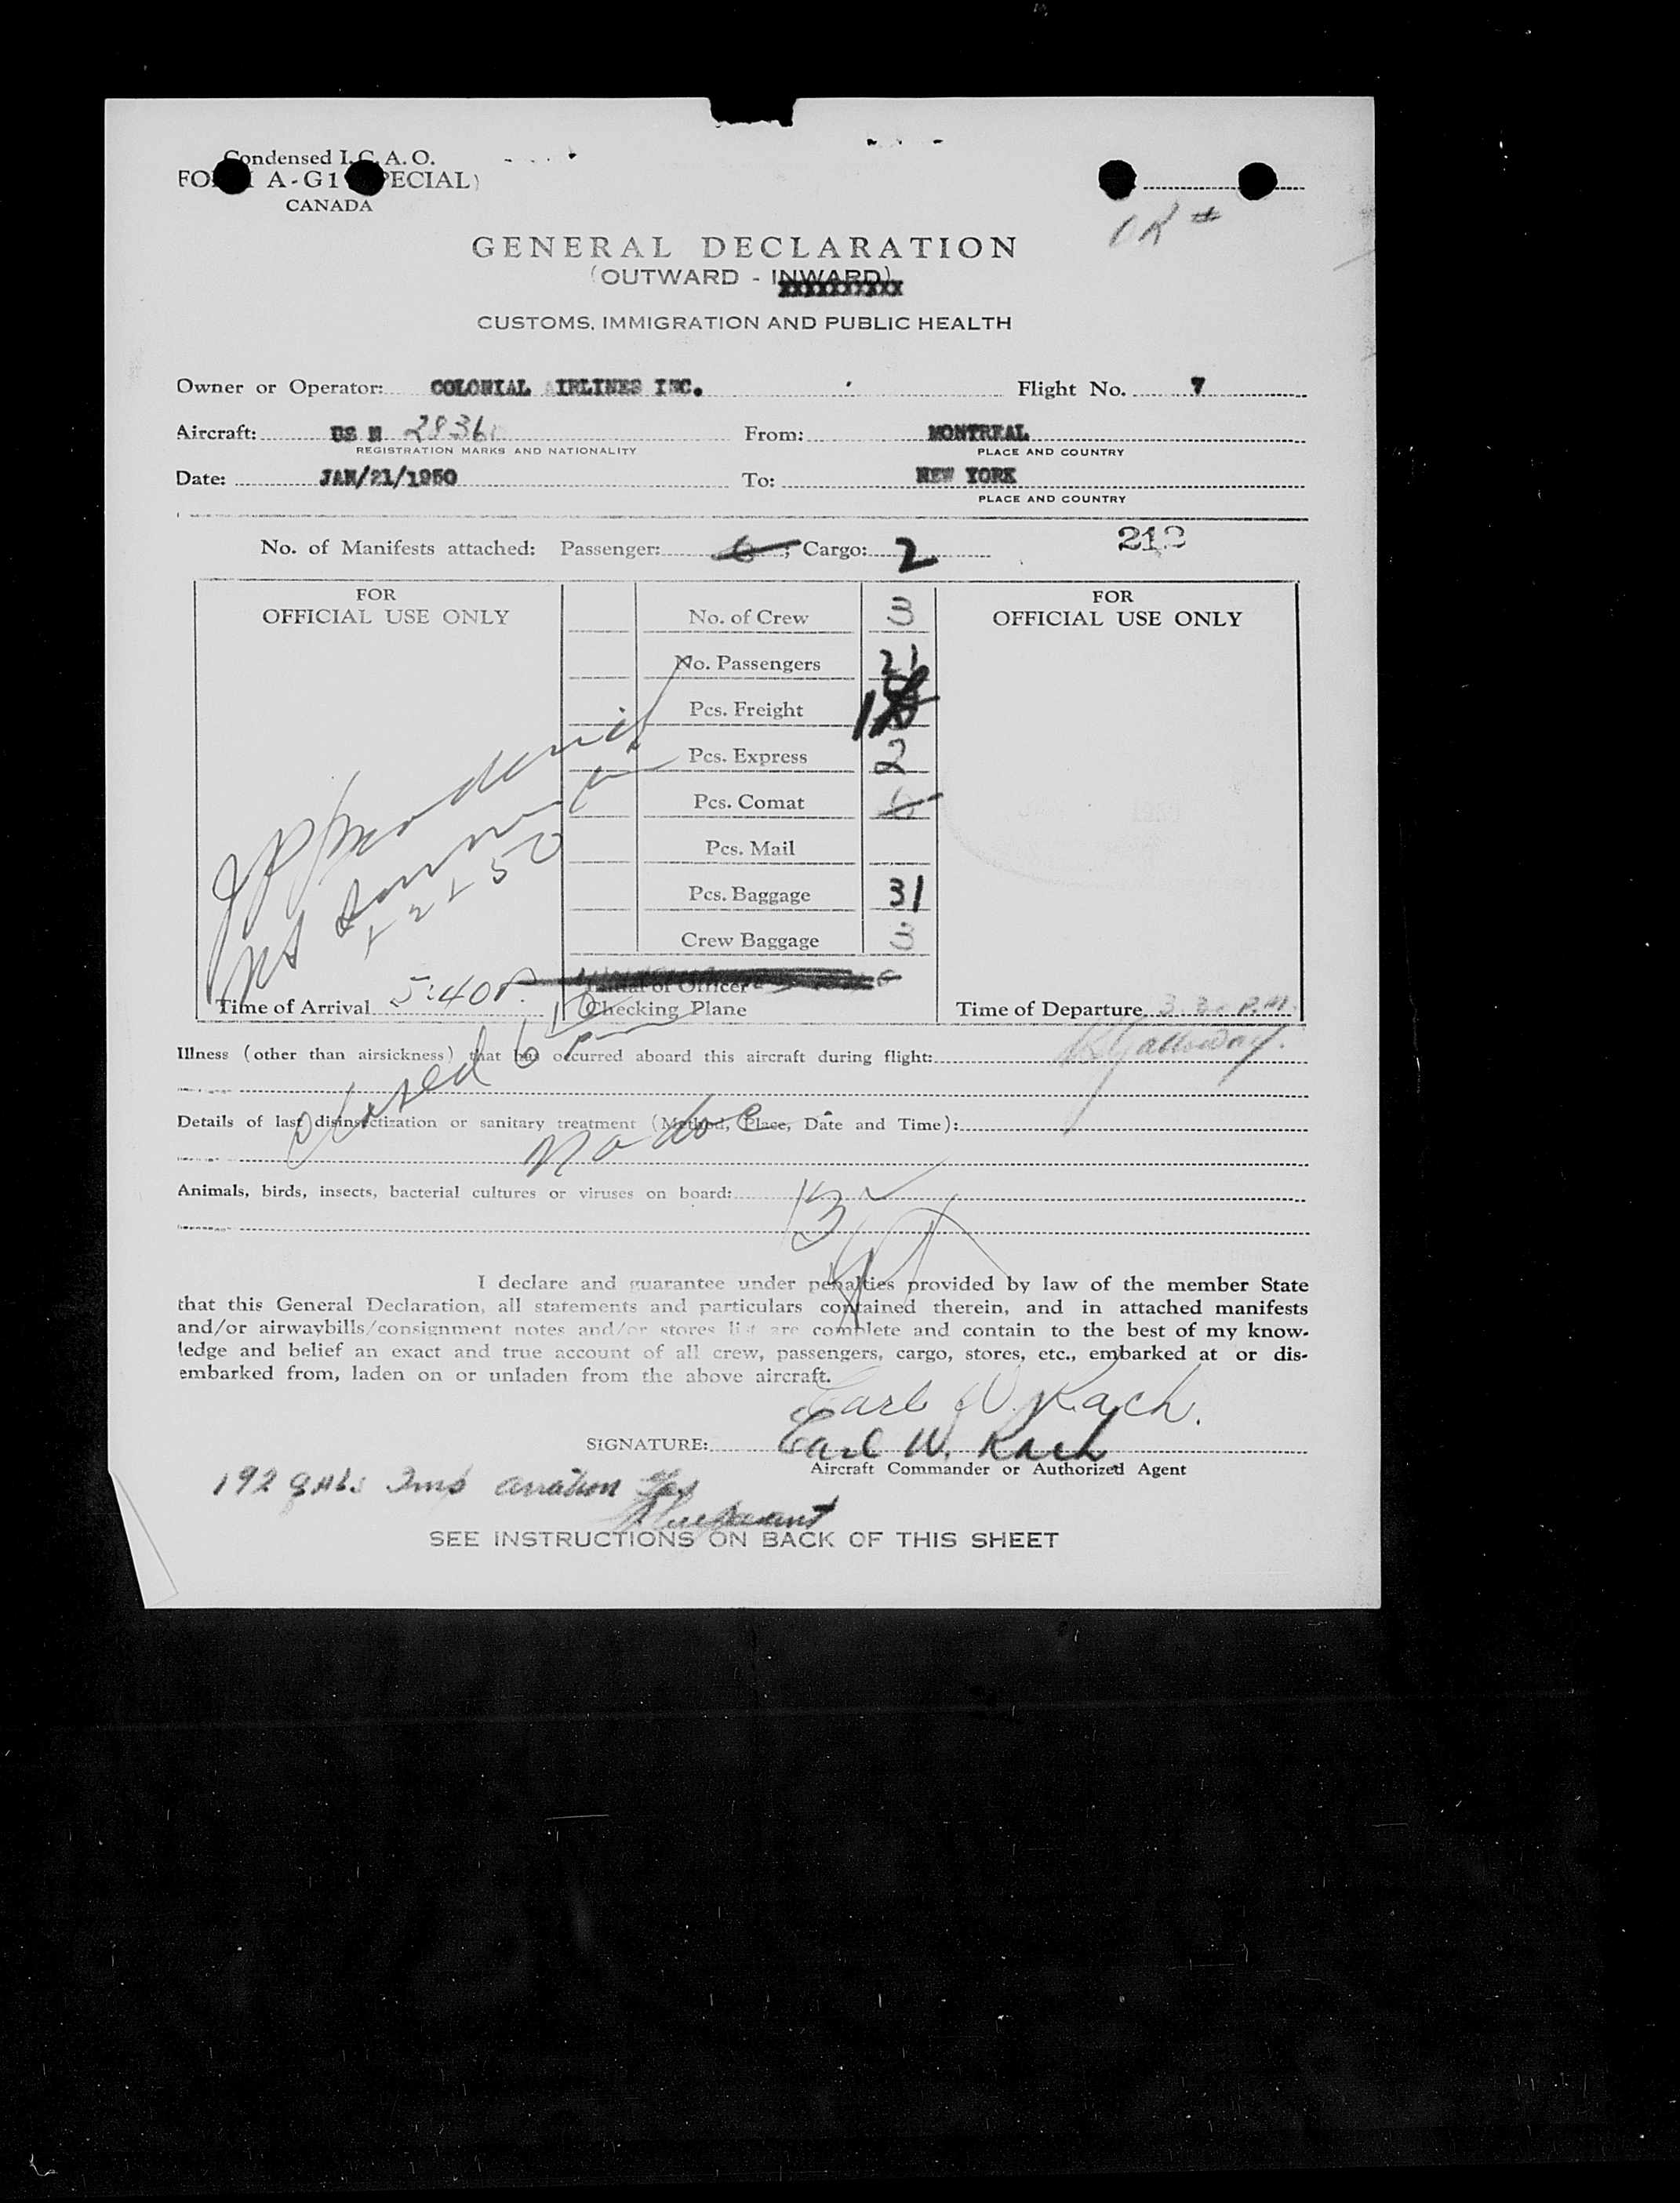 Condensed I.C.A.O.
FORM A-G1 (SPECIAL)
CANADA
OK #
GENERAL DECLARATION
(OUTWARD - INWARD)
CUSTOMS, IMMIGRATION AND PUBLIC HEALTH
Owner or Operator: COLONIAL AIRLINES INC. Flight No. 7
Aircraft: US N 2836 From: MONTREAL
REGISTRATION MARKS AND NATIONALITY PLACE AND COUNTRY
Date: JAN/21/1950 To: NEW YORK
PLACE AND COUNTRY
212
No. of Manifests attached: Passenger: 6; Cargo: 2
FOR
OFFICIAL USE ONLY
No. of Crew 3
No. Passengers 21
Pcs. Freight
Pcs. Express 2
Pcs. Comat
Pcs. Mail
Pcs. Baggage 31
Crew Baggage 3
FOR
OFFICIAL USE ONLY
1 21 50
Time of Arrival 5:40 P.
Initial of Officer
Checking Plane
Time of Departure 3 30 P.M.
Galloway.
Illness (other than airsickness) that has occurred aboard this aircraft during flight:
Details of last disinsectization or sanitary treatment (Method, Place, Date and Time):
Animals, birds, insects, bacterial cultures or viruses on board:
I declare and guarantee under penalties provided by law of the member State
that this General Declaration, all statements and particulars contained therein, and in attached manifests
and/or airwaybills/consignment notes and/or stores list are complete and contain to the best of my know-
ledge and belief an exact and true account of all crew, passengers, cargo, stores, etc., embarked at or dis-
embarked from, laden on or unladen from the above aircraft.
Earl W. Rach.
SIGNATURE: Earl W. Rach
Aircraft Commander or Authorized Agent
192 gals Imp aviation gas
SEE INSTRUCTIONS ON BACK OF THIS SHEET